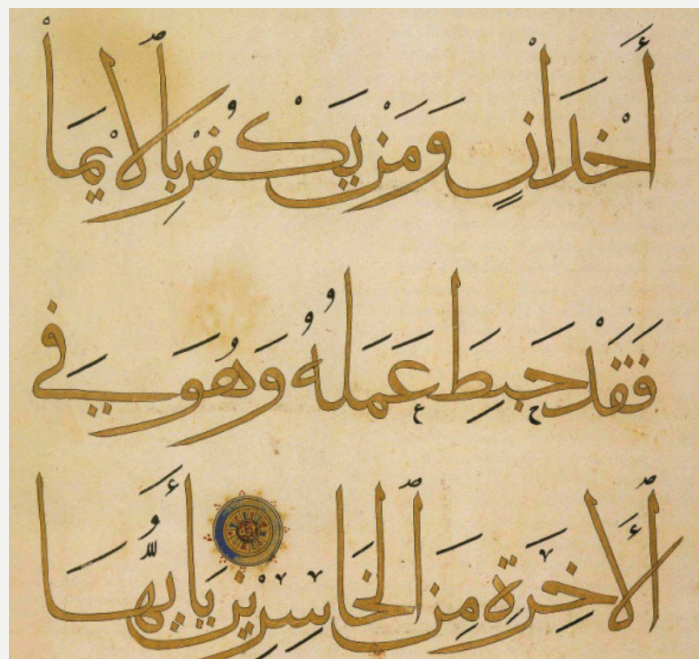 أَخْدَانٍ وَمَنْ يَكْفُرْ بِٱلْايمَا
فَقَدْ حَبِطَ عَمَلُهُ وَهُوَ فِي
ٱلْأَخِرَةِ مِنَ ٱلْخَاسِرِيْنَ يَأَيُّهَا